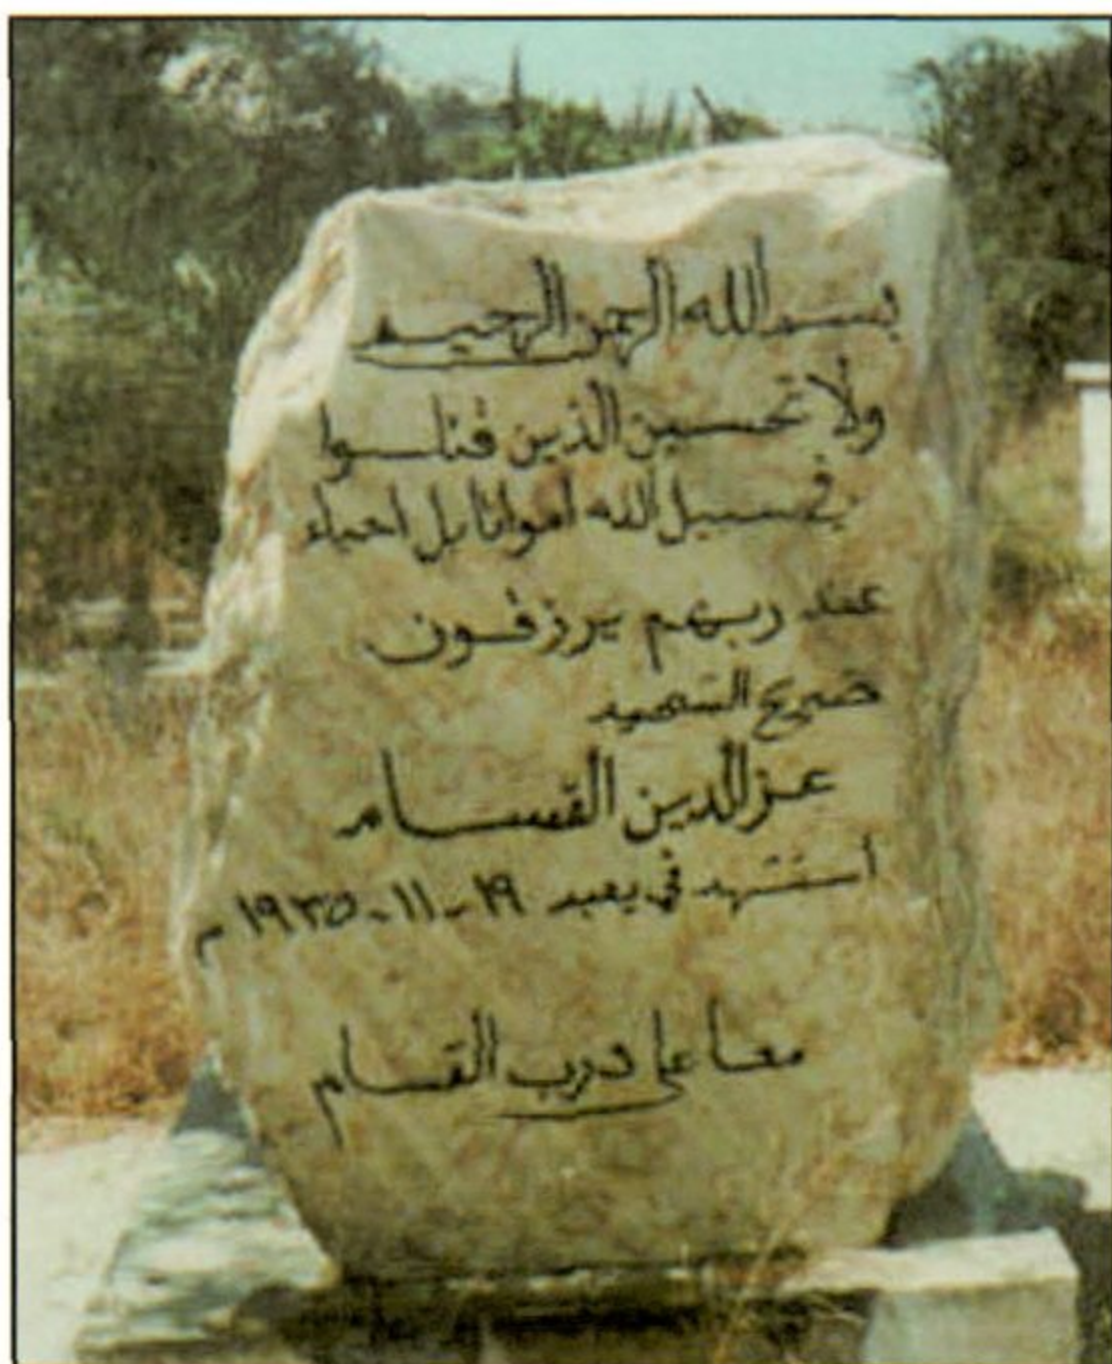 بسم الله الرحمن الرحيم
ولا تحسبن الذين قتلوا
في سبيل الله امواتا بل احياء
عند ربهم يرزقون
ضريح الشهيد
عز الدين القسام
أستشهد في يعبد ١٩-١١-١٩٣٥ م
معا على درب القسام